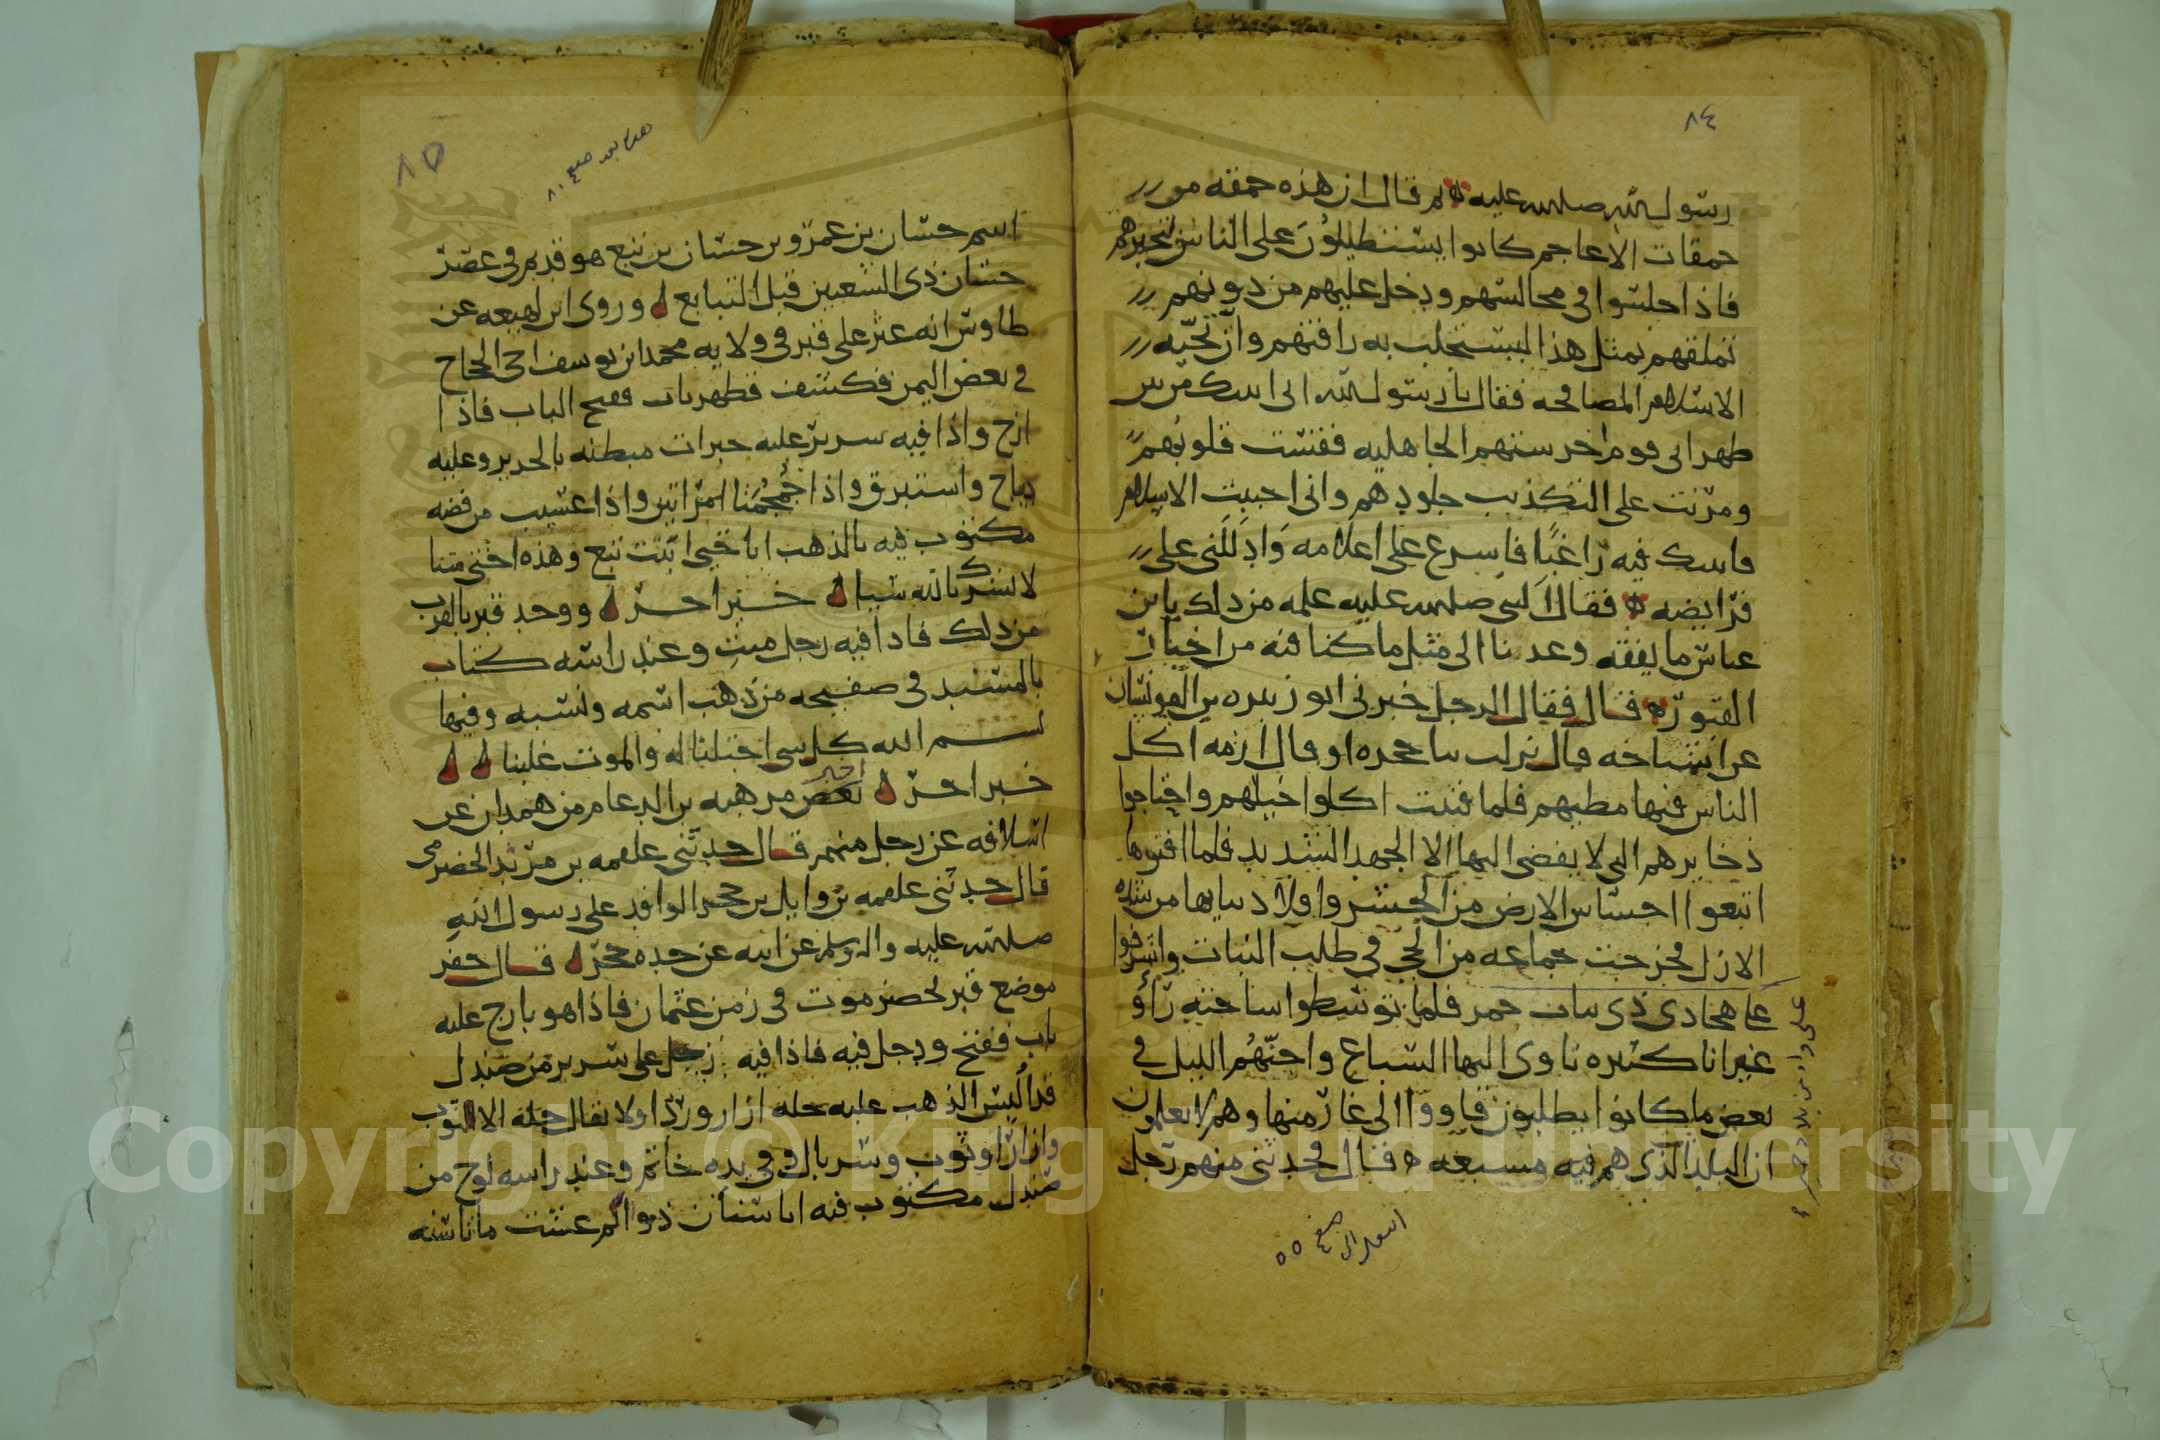 ٨٤
رسول الله صلى الله عليه ثم قال ان هذه حمقه من
حمقات الاعاجم كانوا يستطيلون على الناس بتجبرهم
فاذا جلسوا في مجالسهم ودخل عليهم من دونهم
تملقهم بمثل هذا ليستجلب به رافتهم وان تحيه
الاسلام المصافحه فقال يا رسول الله اني اسك من بين
ظهراني قوم اخر سنتهم الجاهليه فقست قلوبهم
ومرنت على التكذيب جلودهم واني احببت الاسلام
فاسك فيه راغبا فاسرع على اعلامه وادللني على
فرايضه فقال النبي صلى الله عليه علمه من ذلك يابن
عباس ما يفقه وعدنا الى مثل ما كنا فيه من اخبار
القبور فقال فقال الرجل خبرني ابو زبيده بن
عن اشياخه قال نزلت بنا او قال ازمه اكل
الناس فيها مطيهم فلما فنيت اكلوا خيلهم واجتاحوا
ذخايرهم التي لا يفضى اليها الا الجهد الشديد فلما افنوها
اتبعوا احساس الارض من الحشر من شده
الازل فخرجت جماعه من الحي في طلب النبات واشرفوا
ذي نبات حمر فلما توسطوا ساحته راو
غيرانا كثيره تاوي اليها السباع واجنهم الليل في
بعض ما كانوا يطلبون فاووا الى غار منها وهم لا يعلمون
ان البلد الذي هم فيه مسبعه قال فحدثني منهم رجل
صفح ٥٥
٨٥
صفح ٨١
اسم حسان بن عمرو بن حسان بن تبع هو قديم في عصر
حسان ذي الشعبين قبل التبابع وروى ابن لهيعه عن
طاوس انه عثر على قبر في ولايه محمد ابن يوسف اخي الحجاج
في بعض اليمن فكشف فظهر باب ففتح الباب فاذا
ازج واذا فيه سرير عليه حبرات مبطنه بالحرير وعليه
ديباج واستبرق واذا جمجمتا امراتين واذا عسيب من فضه
مكتوب فيه بالذهب انا حبى ابنت تبع وهذه اختي متنا
لا نشرك بالله شيا خبر اخر ووجد قبر بالقرب
من ذلك فاذا فيه رجل ميت وعند راسه كتاب
بالمسند في صفيحه من ذهب اسمه ونسبه وفيها
بسم الله كل شي احتلنا له والموت غلبنا
خبر اخر اخبر بعض مرهبه بن الدعام من همدان عن
اسلافه عن رجل منهم قال حدثني علقمه بن مرثد الحضرمي
قال حدثني علقمه بن وايل بن حجر الوافد على رسول الله
صلى الله عليه واله وسلم عن ابيه عن جده حجر قال حفر
موضع قبر بحضرموت في زمن عثمان فاذا هو بازج عليه
باب ففتح ودخل فيه فاذا فيه رجل على سرير من صندل
قد البس الذهب عليه حله ازار وردا ولا يقال حله الا لثوب
وازار او ثوب وسربال وفي يده خاتم وعند راسه لوح من
صندل مكتوب فيه انا شنان ذو الم عشت مانا سنه
Copyright © King Saud University